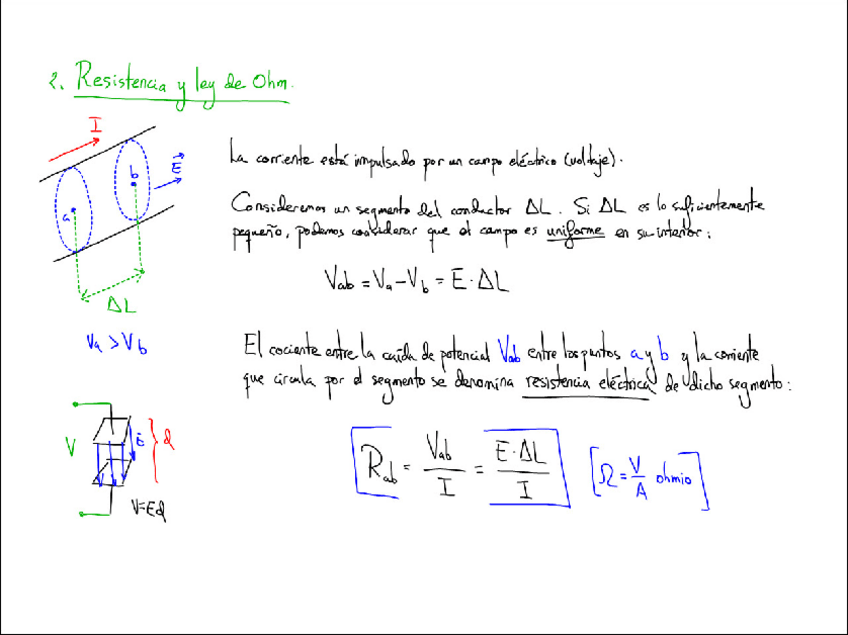 2. Resistencia y ley de Ohm.
I
La corriente está impulsado por un campo eléctrico (voltaje).
b
E
a
Consideremos un segmento del conductor ΔL. Si ΔL es lo suficientemente
pequeño, podemos considerar que el campo es uniforme en su interior:
Vab = Va - Vb = E · ΔL
ΔL
Va > Vb
El cociente entre la caída de potencial Vab entre los puntos a y b y la corriente
que circula por el segmento se denomina resistencia eléctrica de dicho segmento:
V
E
d
V=Ed
Rab = Vab / I = E · ΔL / I
[Ω = V/A ohmio]